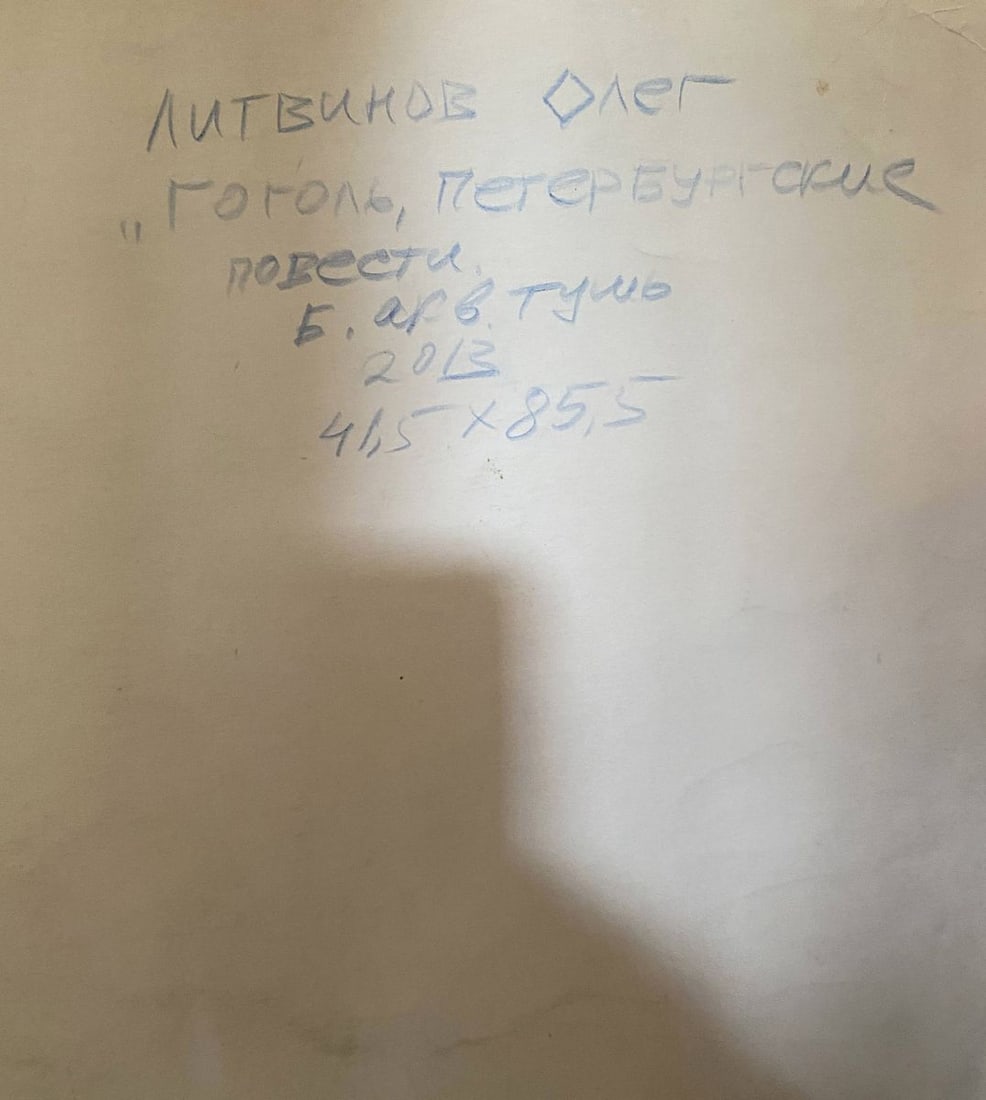 ЛИТВИНОВ ОЛЕГ
„Гоголь, Петербургские
повести.
Б. акв. тушь
2013
41,5 x 85,5